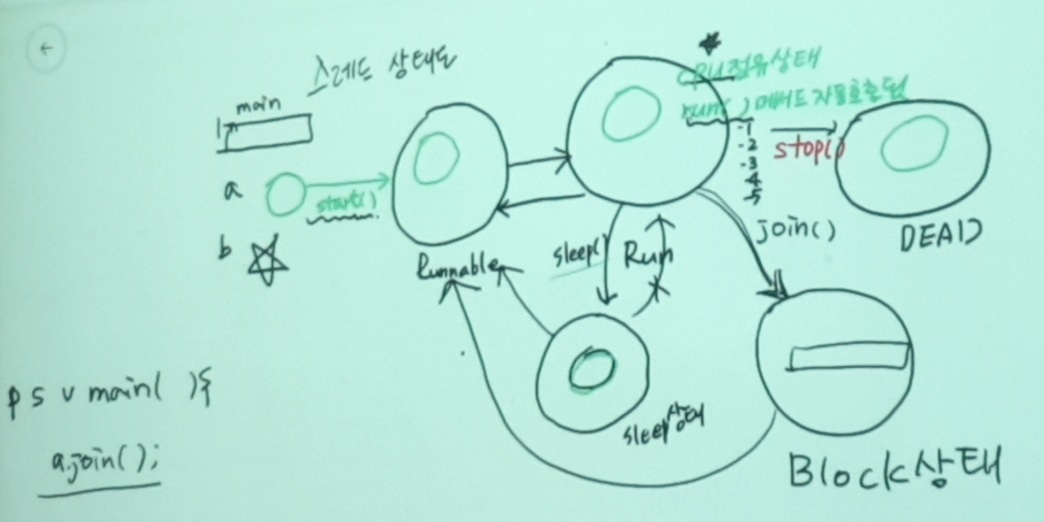 스레드 상태도
main
1
a
start()
b
Runnable
CPU점유상태
run() 메버드 자동호출됨
-1
-2
-3
-4
-5
stop()
DEAD
sleep()
Run
join()
sleep상태
Block상태
p s v main( ){
a.join();